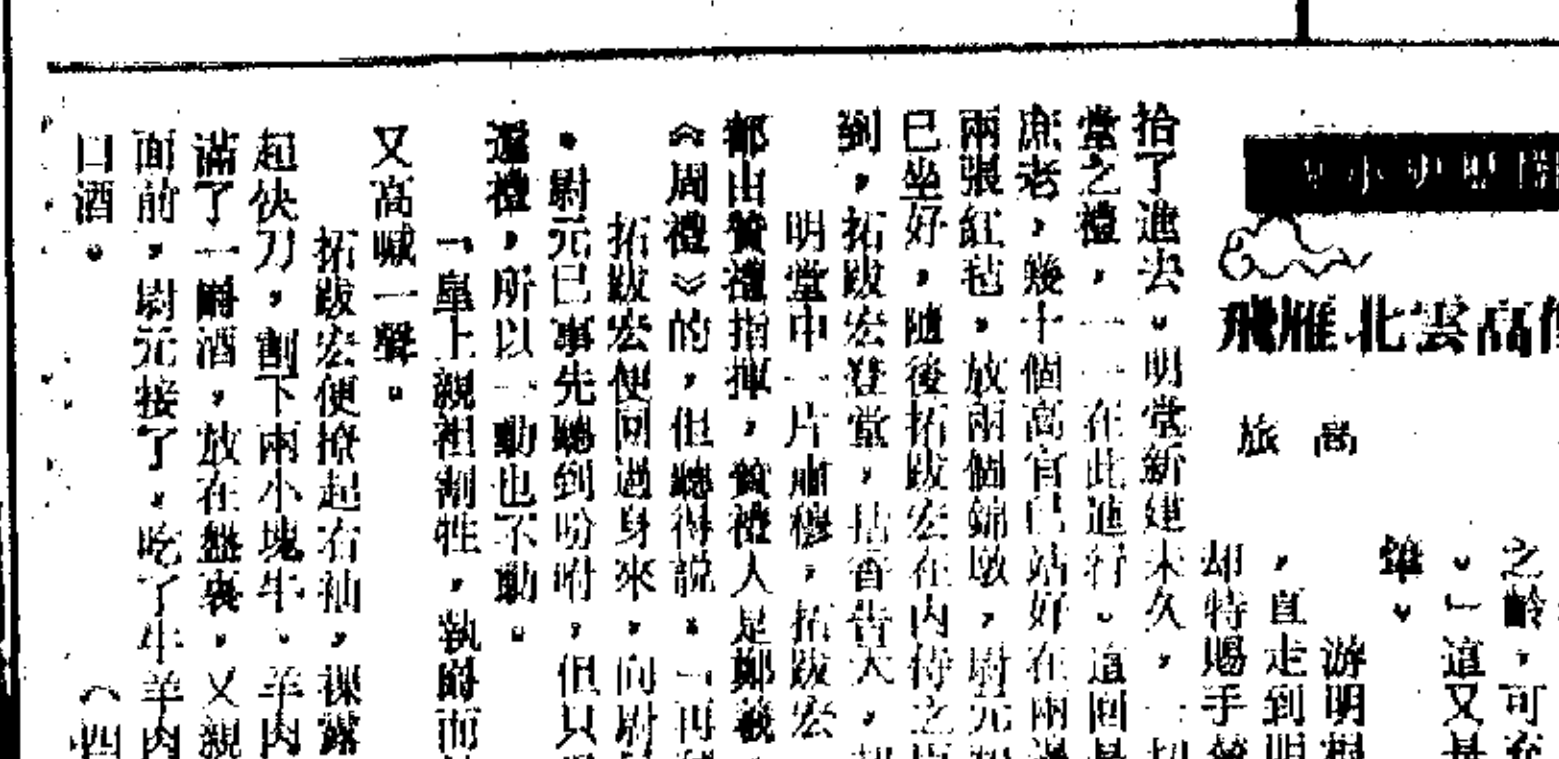 飛雁北雲高
高旅
之齡,可充
。」這又是
筆。
游明根
,直走到明
却特賜手
拾了進去。明堂新建未久,一切
堂之禮,一一在此進行。這回是
庶老,幾十個高官已站好在兩邊
兩張紅毡,放兩個錦墩,尉元
已坐好,隨後拓跋宏在內侍之
到,拓跋宏登堂,拈香告天,
明堂中一片肅穆,拓跋宏
都由贊禮指揮,贊禮人是鄭羲,
《周禮》的,但聽得説:「再
拓跋宏便回過身來,向尉
。尉元已事先聽到吩咐,但只
還禮,所以一動也不動。
「皇上親袒割牲,執爵而
又高喊一聲。
拓跋宏便撩起右袖,裸露
起快刀,割下兩小塊牛、羊肉
滿了一爵酒,放在盤裏,又親
面前,尉元接了,吃了牛羊肉
口酒。
(四